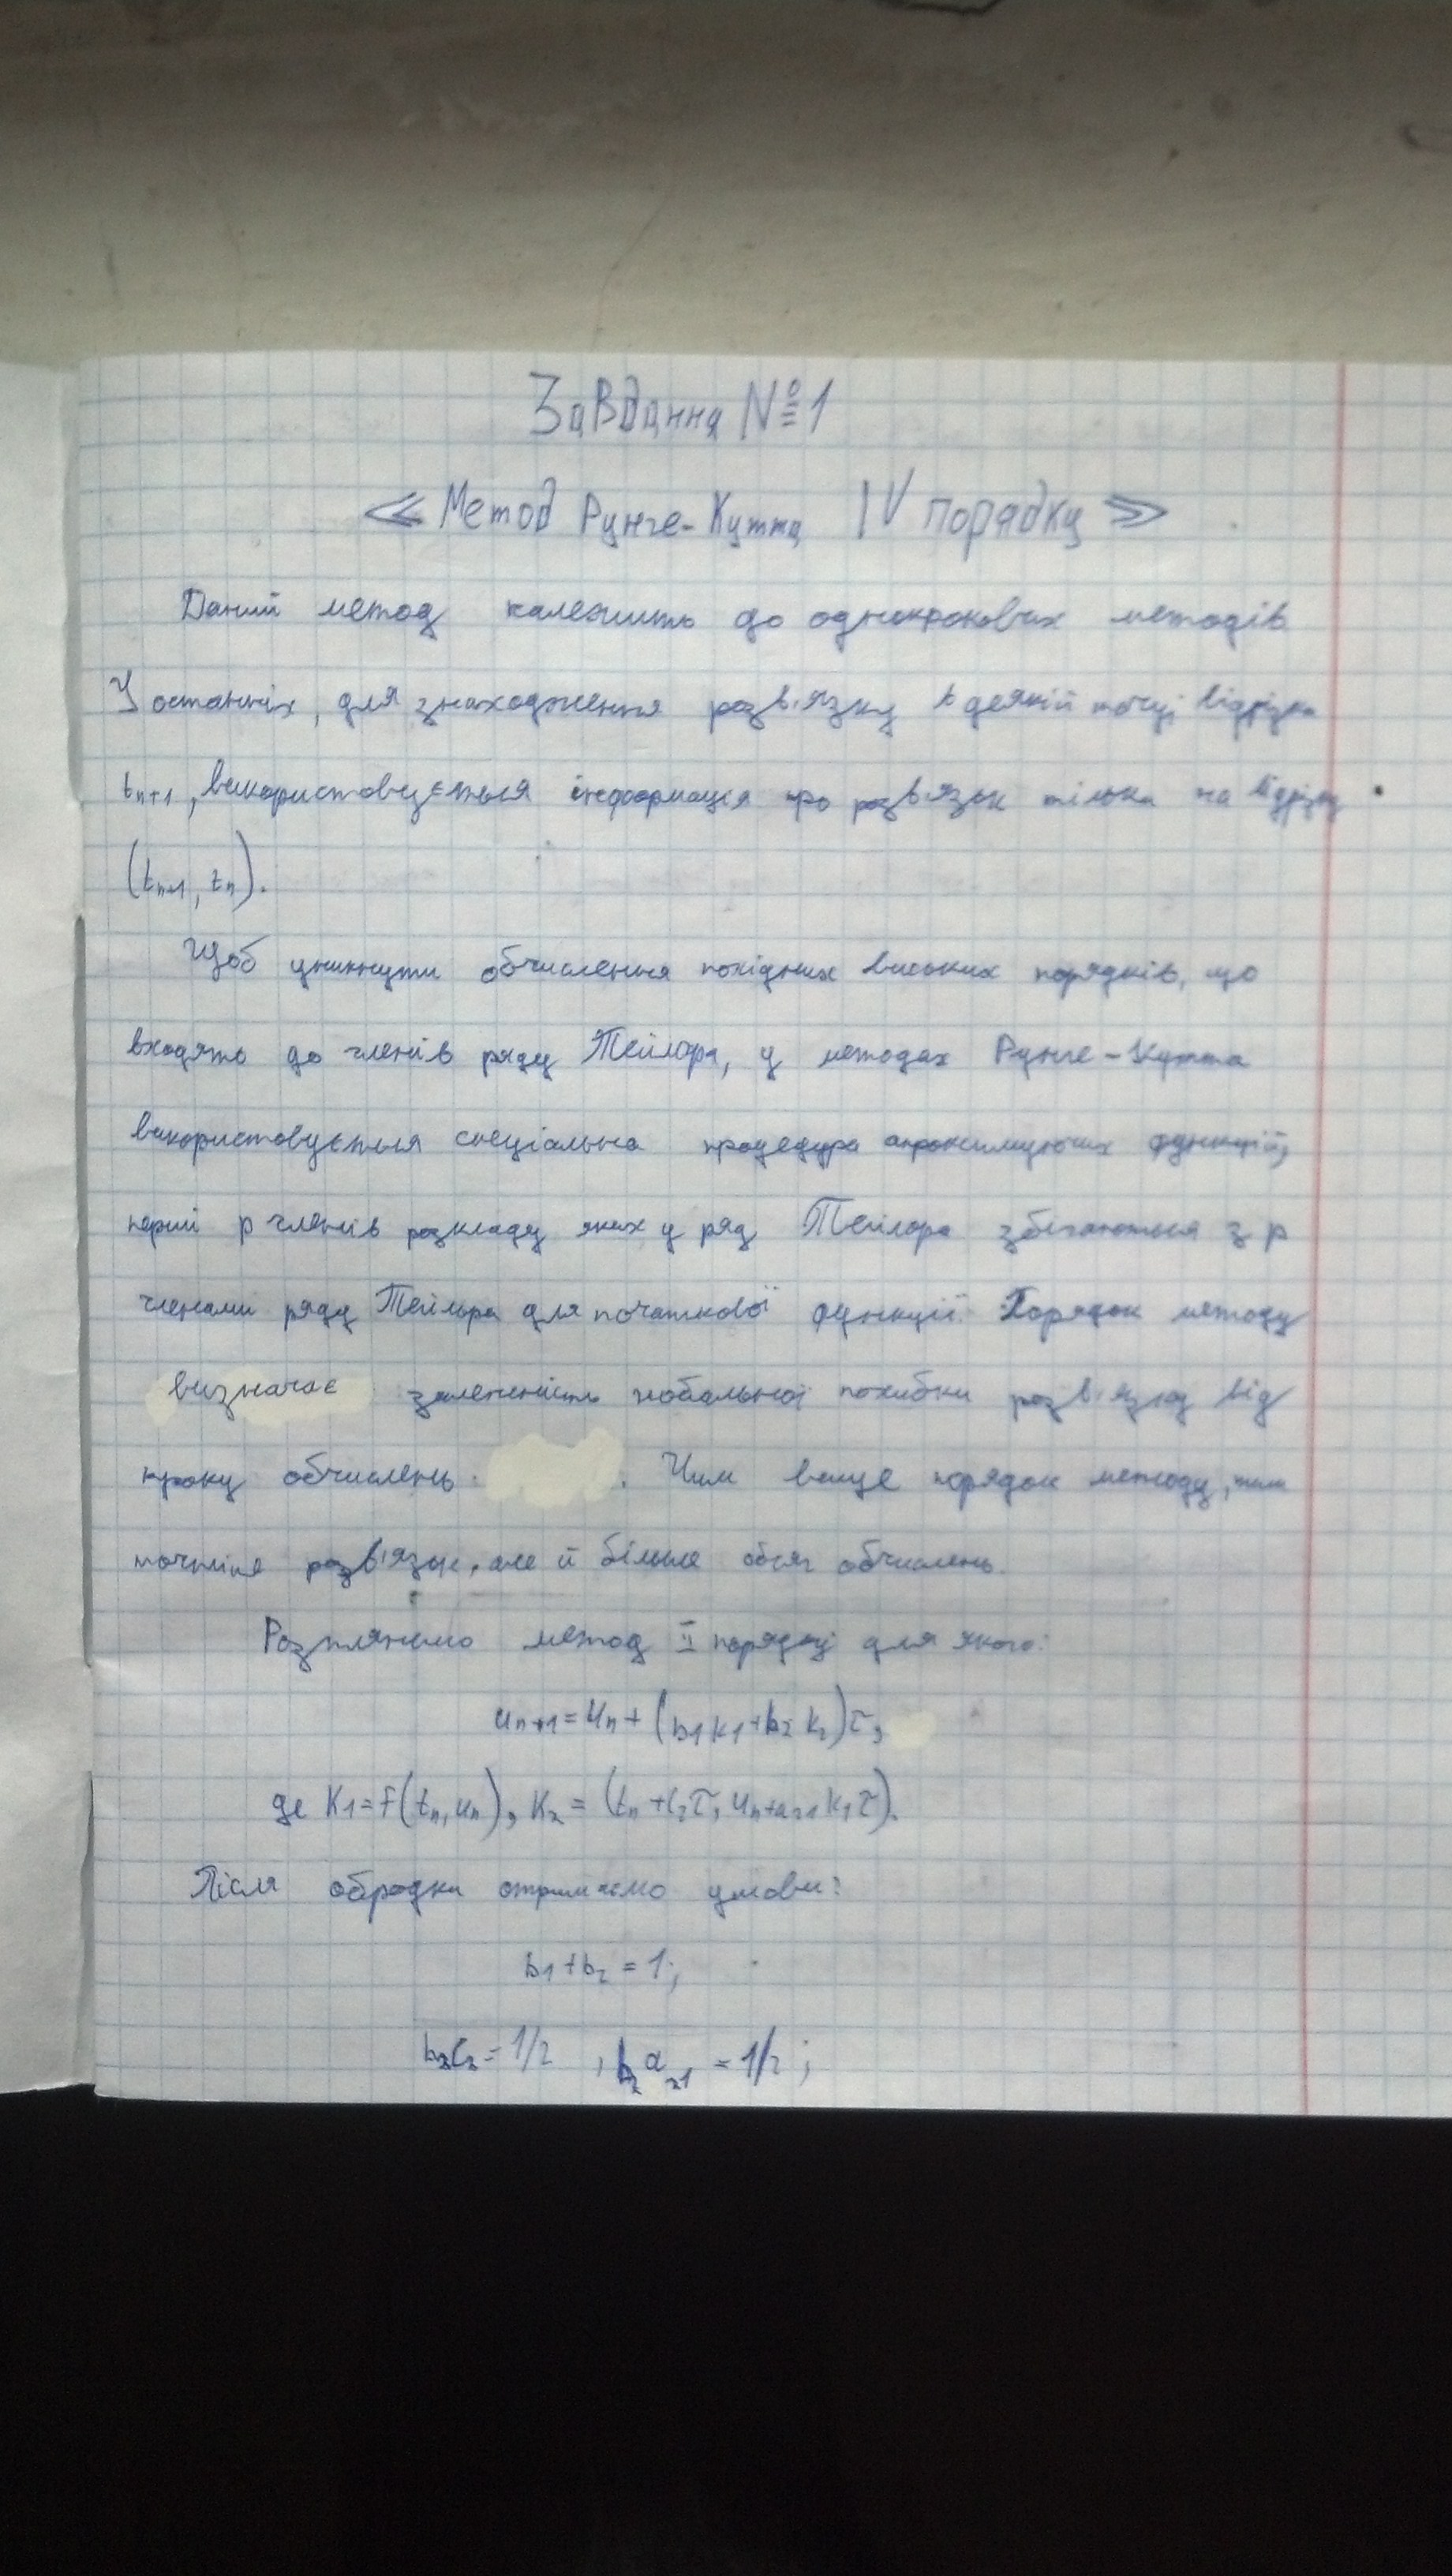 Завдання №1
« Метод Рунге-Кутта IV порядку »
Даний метод належить до однокрокових методів.
У останніх, для знаходження розв'язку в деякій точці відрізка
tₙ₊₁, використовується інформація про розв'язок тільки на відрізку
(tₙ₊₁, tₙ).
Щоб уникнути обчислення похідних високих порядків, що
входять до членів ряду Тейлора, у методах Рунге-Кутта
використовується спеціальна процедура апроксимуючих функцій,
перші p членів розкладу яких у ряд Тейлора збігаються з p
членами ряду Тейлора для початкової функції. Порядок методу
визначає залежність глобальної похибки розв'язку від
кроку обчислень. Чим вище порядок методу, тим
точніше розв'язок, але й більше обсяг обчислень.
Розглянемо метод II порядку для якого:
uₙ₊₁ = uₙ + (b₁k₁ + b₂k₂)τ,
де K₁ = f(tₙ, uₙ), K₂ = (tₙ + c₂τ, uₙ + a₂₁k₁τ).
Після обробки отримаємо умови:
b₁ + b₂ = 1;
b₂c₂ = 1/2 , b₂a₂₁ = 1/2 ;